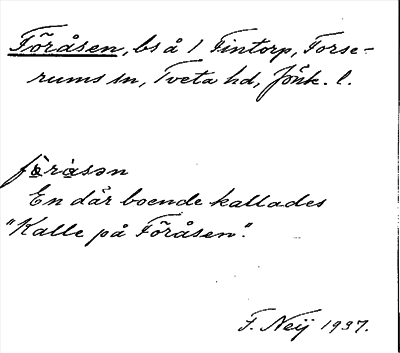 Föråsen, bs å 1 Fintorp, Torse-
rums sn, Tveta hd, Jönk. l.
fö̀rà̊sən
En där boende kallades
"Kalle på Föråsen".
F. Neij 1937.